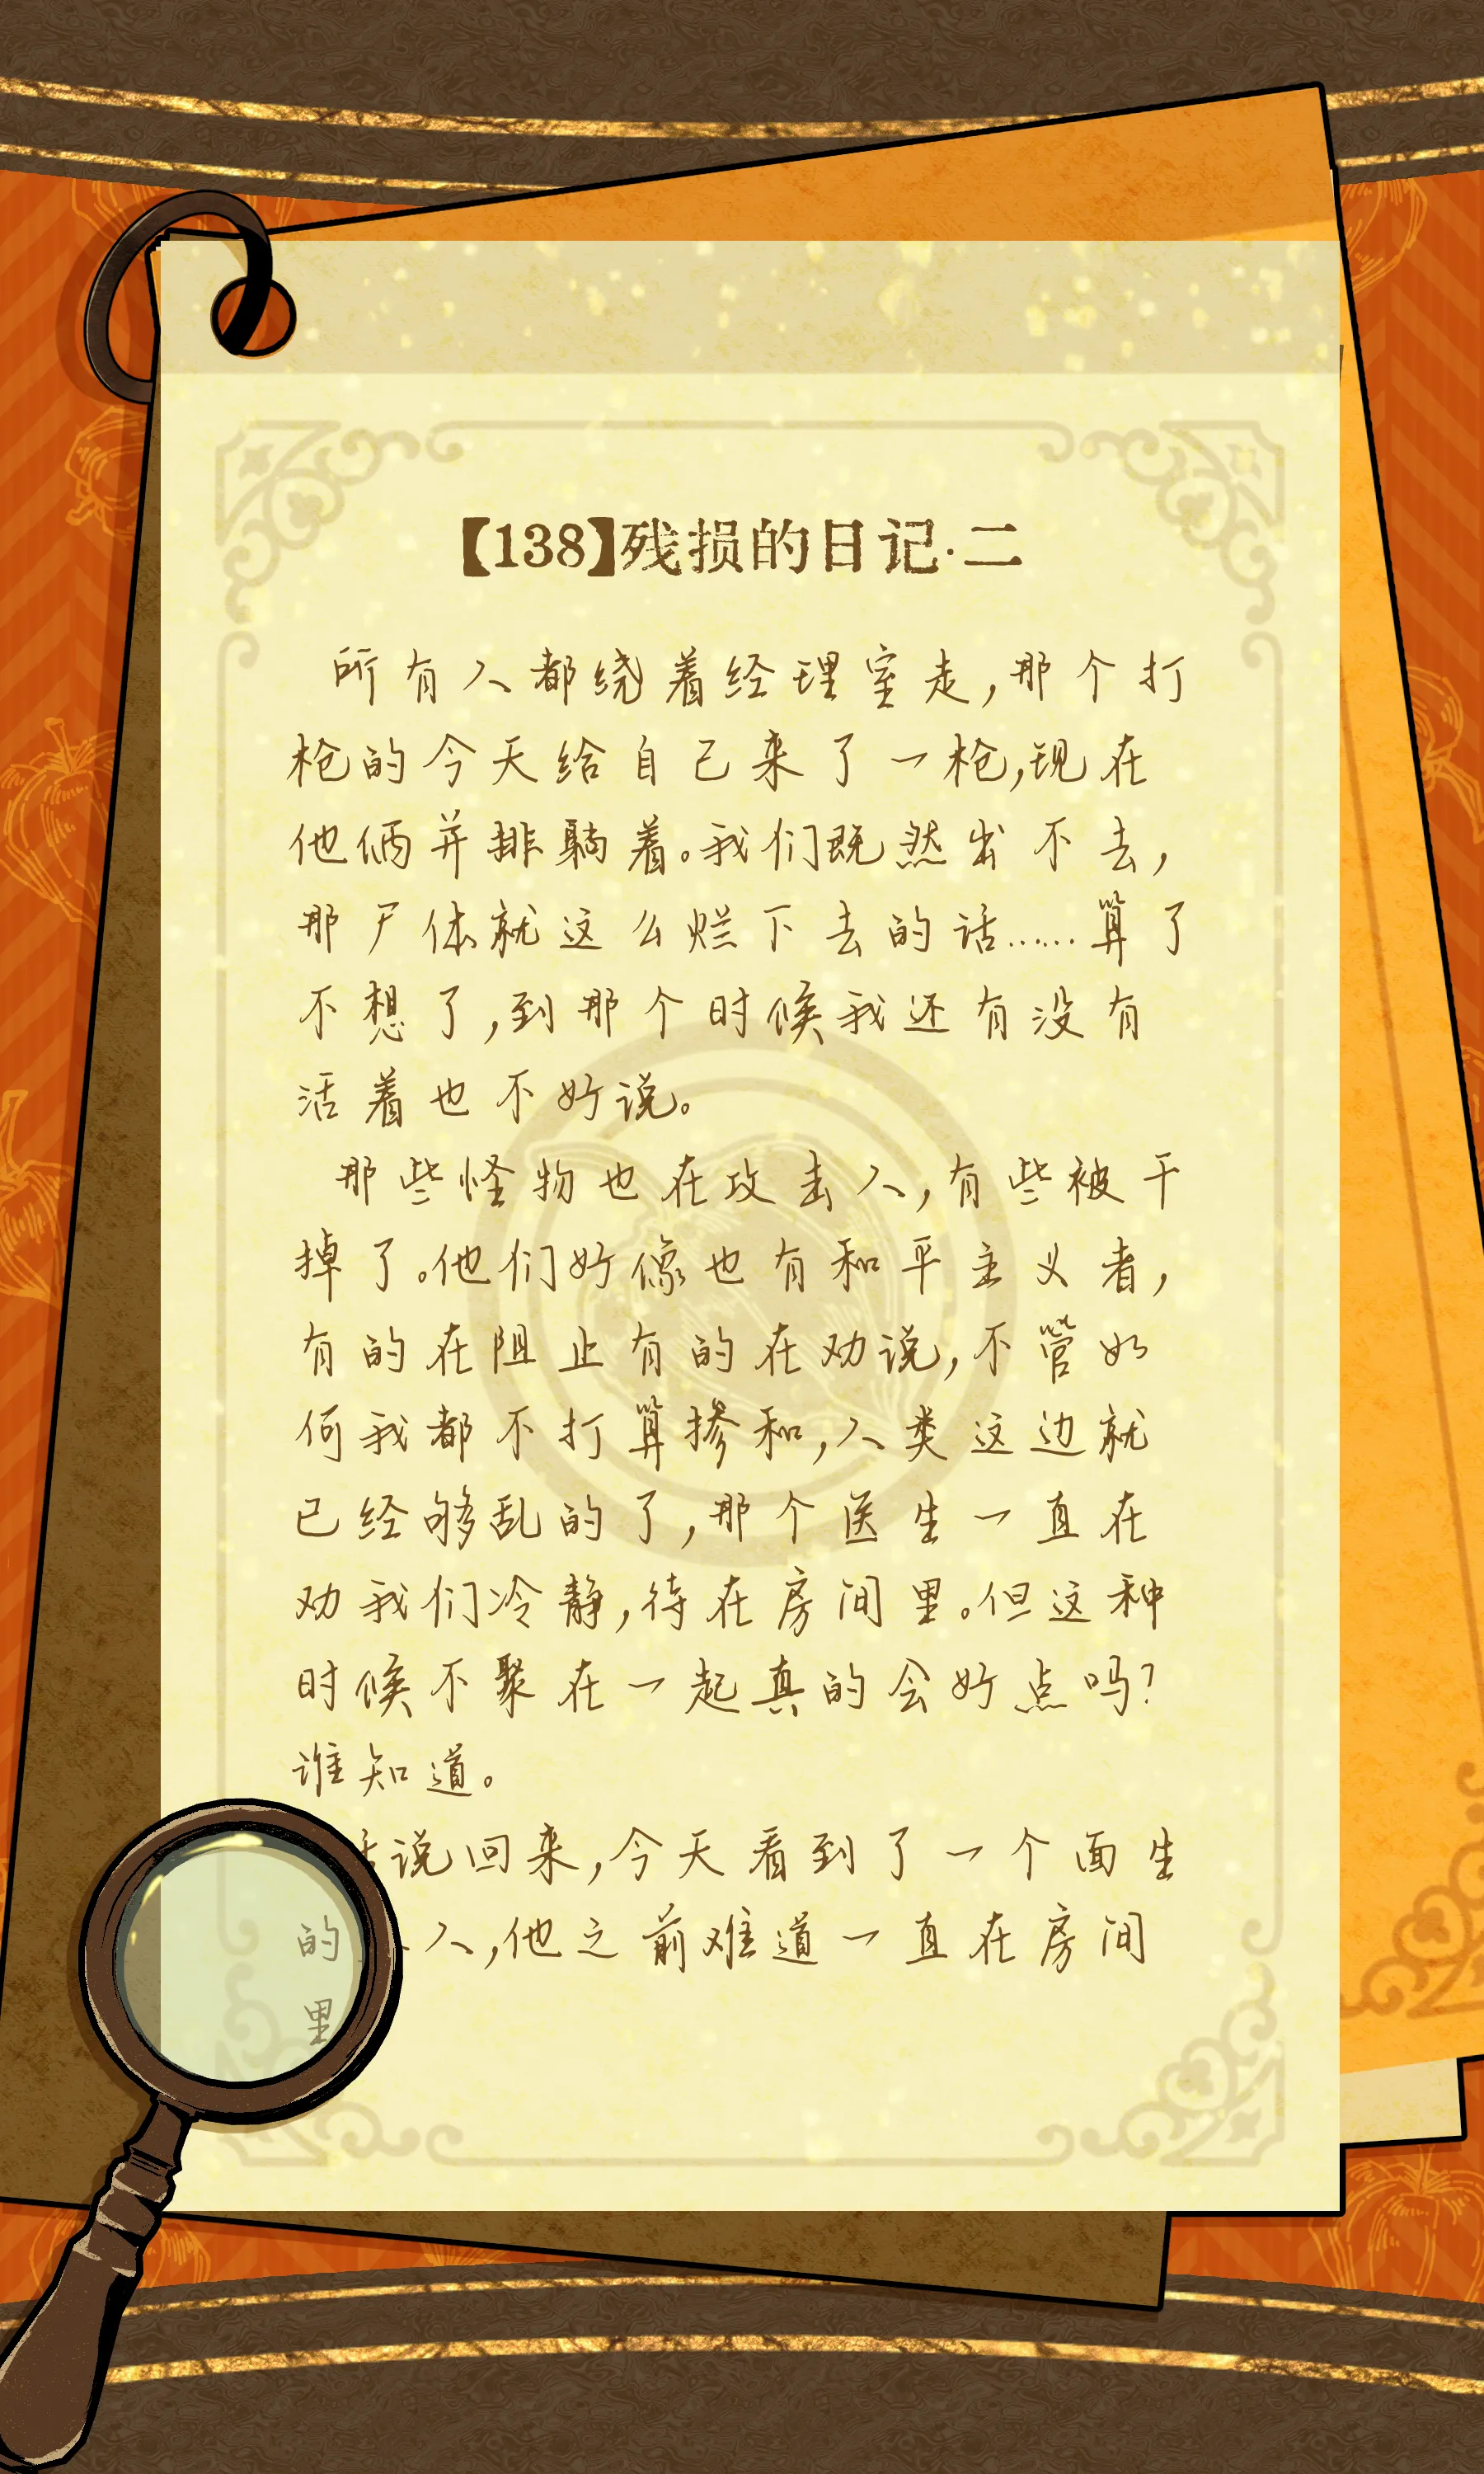 【138】残损的日记·二
所有人都绕着经理室走,那个打
枪的今天给自己来了一枪,现在
他俩并排躺着。我们既然出不去,
那尸体就这么烂下去的话……算了
不想了,到那个时候我还有没有
活着也不好说。
那些怪物也在攻击人,有些被干
掉了。他们好像也有和平主义者,
有的在阻止有的在劝说,不管如
何我都不打算掺和,人类这边就
已经够乱的了,那个医生一直在
劝我们冷静,待在房间里。但这种
时候不聚在一起真的会好点吗?
谁知道。
说回来,今天看到了一个面生
的 人,他之前难道一直在房间
里